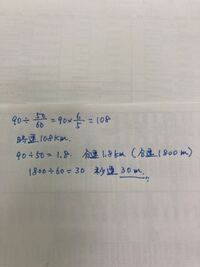 90÷50/60=90×6/5=108
時速108km.
90÷50=1.8. 分速1.8km(分速1800m)
1800÷60=30 秒速30m.